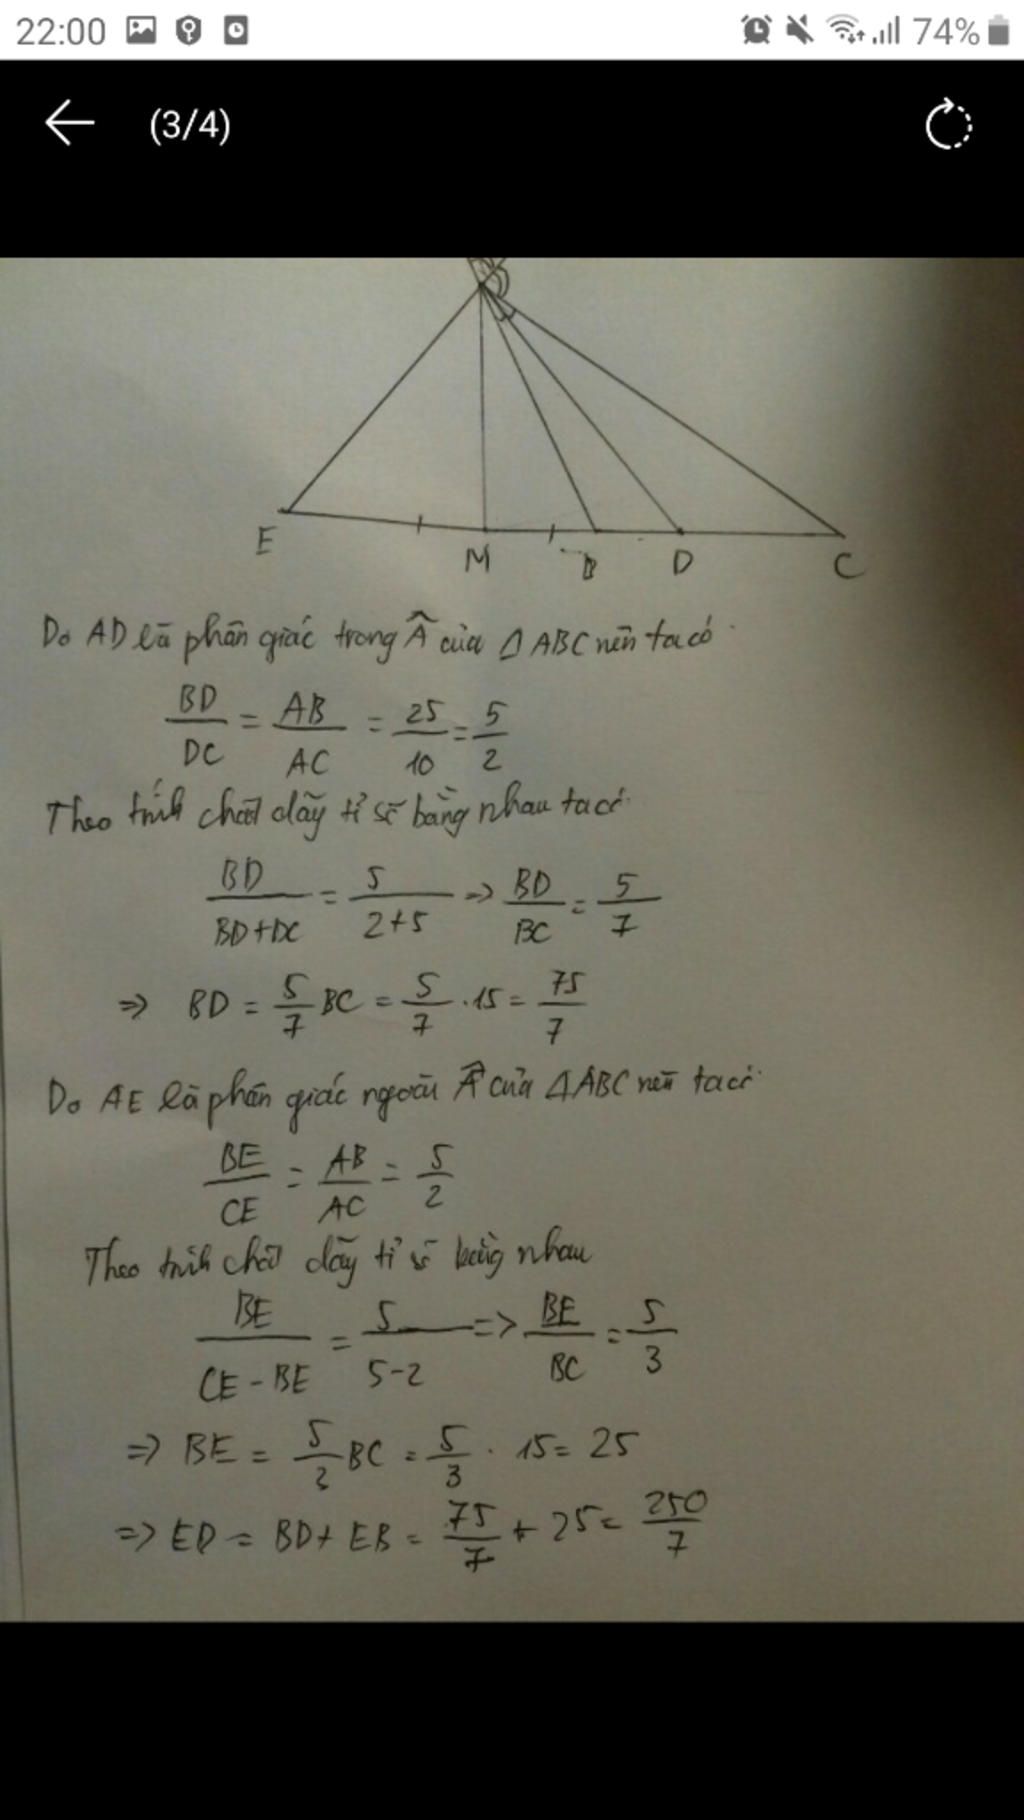 22:00 74%
(3/4)
E M B D C
Do AD là phân giác trong Â của △ABC nên ta có
BD/DC = AB/AC = 25/10 = 5/2
Theo tính chất dãy tỉ số bằng nhau ta có
BD/BD+DC = 5/2+5 => BD/BC = 5/7
=> BD = 5/7 BC = 5/7 . 15 = 75/7
Do AE là phân giác ngoài Â của △ABC nên ta có
BE/CE = AB/AC = 5/2
Theo tính chất dãy tỉ số bằng nhau
BE/CE - BE = 5/5-2 => BE/BC = 5/3
=> BE = 5/3 BC = 5/3 . 15 = 25
=> ED = BD + EB = 75/7 + 25 = 250/7